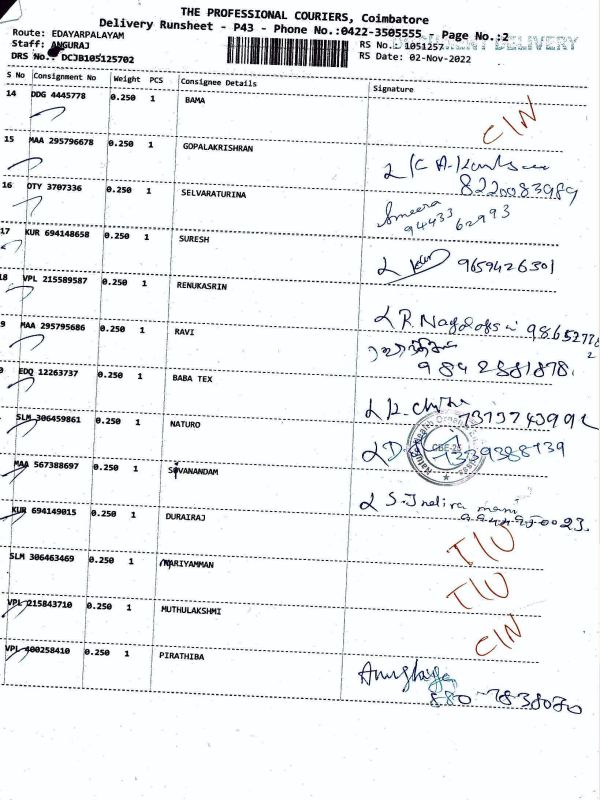 THE PROFESSIONAL COURIERS, Coimbatore
Delivery Runsheet - P43 - Phone No.:0422-3505555 - Page No.:2
Route: EDAYARPALAYAM RS No.: 1051257 DOCUMENT DELIVERY
Staff: ANGURAJ RS Date: 02-Nov-2022
DRS No.: DCJB105125702
S No Consignment No Weight PCS Consignee Details Signature
14 DDG 4445778 0.250 1 BAMA C/N
15 MAA 295796678 0.250 1 GOPALAKRISHRAN
8220083989
16 OTY 3707336 0.250 1 SELVARATURINA Ameera
94433 62993
17 KUR 694148658 0.250 1 SURESH 9659426301
18 VPL 215589587 0.250 1 RENUKASRIN
9 MAA 295795686 0.250 1 RAVI
9842881878.
EDQ 12263737 0.250 1 BABA TEX
SLM 306459861 0.250 1 NATURO
MAA 567388697 0.250 1 SIVANANDAM S. Indira mani
KUR 694149015 0.250 1 DURAIRAJ I/U
SLM 306463469 0.250 1 MARIYAMMAN I/U
VPL 215843710 0.250 1 MUTHULAKSHMI C/N
VPL 400258410 0.250 1 PIRATHIBA